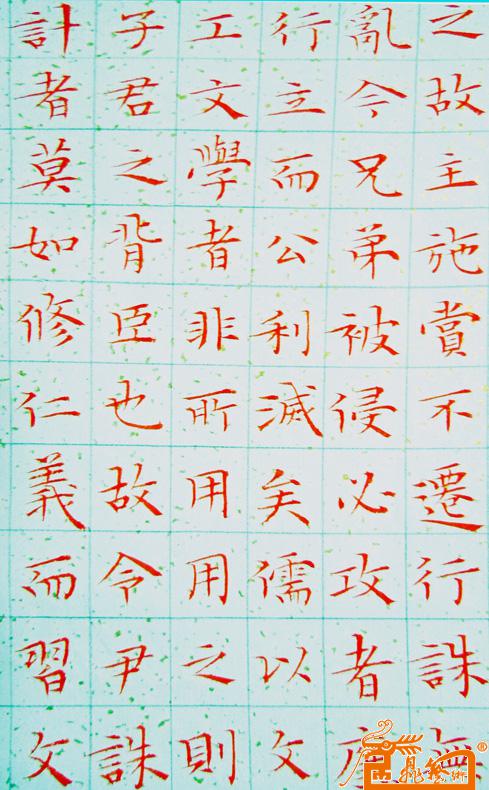 之故主施賞不遷行誅無
亂今兄弟被侵必攻者廉
行立而公利滅矣儒以文
工文學者非所用用之則
子君之背臣也故令尹誅
計者莫如修仁義而習文